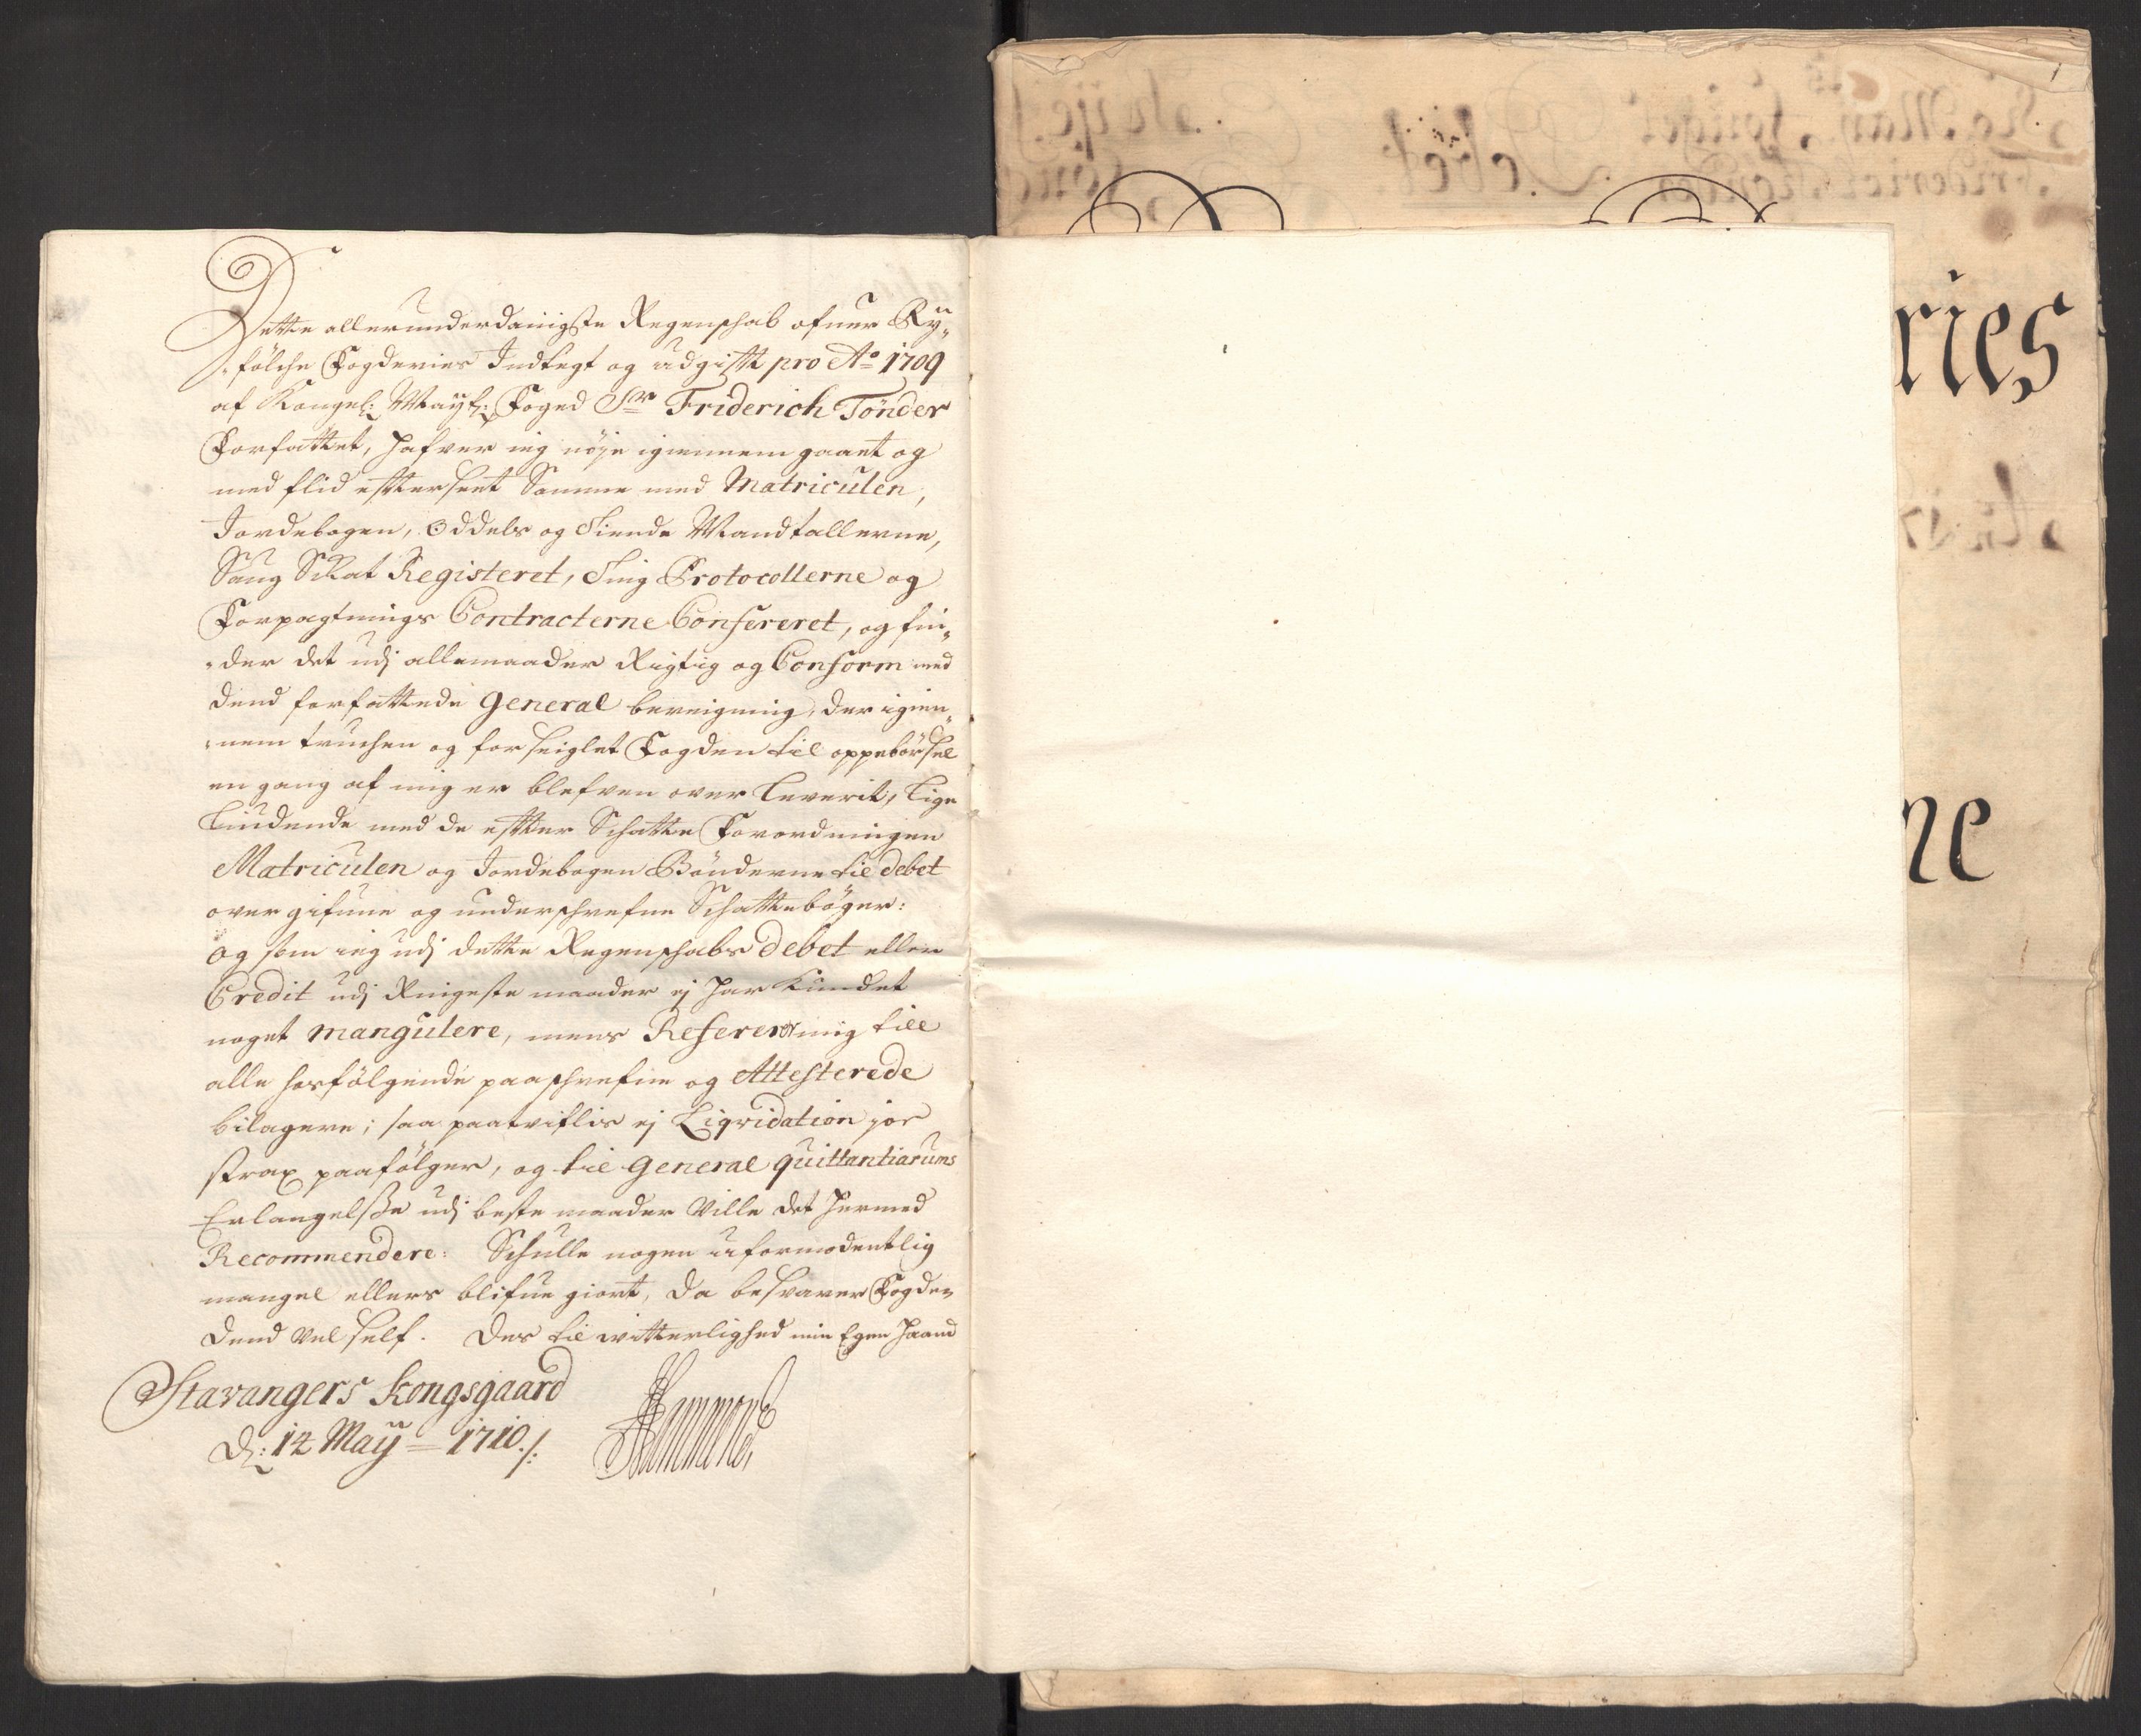 Dette allerunderdanigste Regenschab ofuer Ry„
„fölche Fogderies Indtegt og udgifft pro Ao 1709
af Kongel: Mayts: Foged Sr Friderich Tönder
Forfattet, hafver ieg nöje igiennem gaaet og
med flid effterseet Samme med Matriculen,
Jordebogen, Oddels og Tiende Mandtallerne,
Saug Skat Registeret, Ting Protocollerne og
Forpagtnings Contracterne Confereret, og fin„
„der det udj allemaader Rigtig og Conform med
dend forfattede General bereigning, der igien„
„nem truchen og forseiglet Fogden til oppebörsel
en gang af mig er blefven over leverit, lige
liudende med de effter Schatte Forordningen
Matriculen og Jordebogen Bönderne til debet
over gifune og underschrefne Schatteböger:
og som ieg udj dette Regenschabs debet eller
Credit udj Ringeste maader ej har kundet
noget mangulere, mens Referer mig till
alle hosfölgende paaschrefne og Attesterede
bilagere; saa paatviflis ej Liqvidation jor
strax paafölger, og til General quittantiarums
Erlangelsse udj beste maader Ville det hermed
Recommendere: Schulle nogen uformodentlig
mangel ellers blifue giort, da besvarer Fogden
dend vel self. Des til witterlighed min Egen Haand
Stavangers Kongsgaard
d: 12 Maÿ = 1710 ./.
Hammond
ries
ne